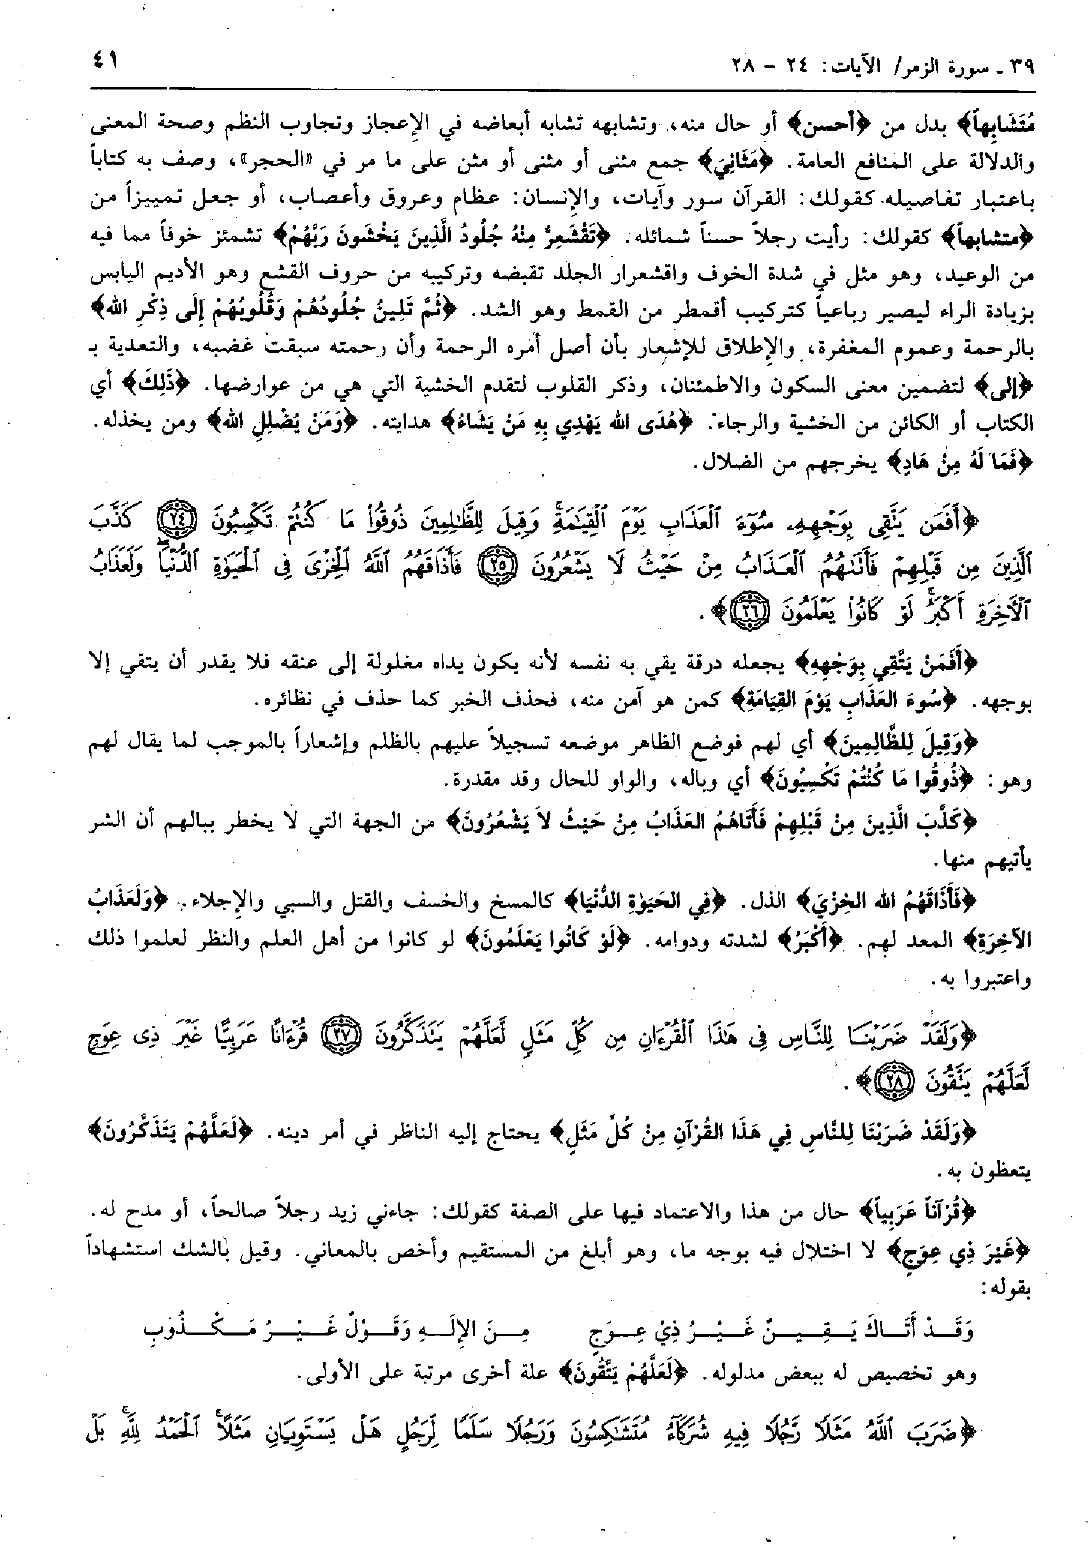 ٣٩ ـ سورة الزمر/ الآيات: ٢٤ – ٢٨
٤١
مُتَشَابِهاً﴾ بدل من ﴿أحسن﴾ أو حال منه، وتشابهه تشابه أبعاضه في الإعجاز وتجاوب النظم وصحة المعنى
والدلالة على المنافع العامة. ﴿مَثَانِيَ﴾ جمع مثنى أو مثنى أو مثن على ما مر في «الحجر»، وصف به كتاباً
باعتبار تفاصيله كقولك: القرآن سور وآيات، والإنسان: عظام وعروق وأعصاب، أو جعل تمييزاً من
﴿متشابهاً﴾ كقولك: رأيت رجلاً حسناً شمائله. ﴿تَقْشَعِرُّ مِنْهُ جُلُودُ الَّذِينَ يَخْشَونَ رَبَّهُمْ﴾ تشمئز خوفاً مما فيه
من الوعيد، وهو مثل في شدة الخوف واقشعرار الجلد تقبضه وتركيبه من حروف القشع وهو الأديم اليابس
بزيادة الراء ليصير رباعياً كتركيب أقمطر من القمط وهو الشد. ﴿ثُمَّ تَلِينُ جُلُودُهُمْ وَقُلُوبُهُمْ إِلَى ذِكْرِ الله﴾
بالرحمة وعموم المغفرة، والإطلاق للإشعار بأن أصل أمره الرحمة وأن رحمته سبقت غضبه، والتعدية بـ
﴿إلى﴾ لتضمين معنى السكون والاطمئنان، وذكر القلوب لتقدم الخشية التي هي من عوارضها. ﴿ذَلِكَ﴾ أي
الكتاب أو الكائن من الخشية والرجاء. ﴿هُدَى الله يَهْدِي بِهِ مَنْ يَشَاءُ﴾ هدايته. ﴿وَمَنْ يُضْلِلِ الله﴾ ومن يخذله.
﴿فَمَا لَهُ مِنْ هَادٍ﴾ يخرجهم من الضلال.
﴿أَفَمَن يَنَّقِى بِوَجْهِهِۦ سُوٓءَ ٱلْعَذَابِ يَوْمَ ٱلْقِيَٰمَةِۚ وَقِيلَ لِلظَّٰلِمِينَ ذُوقُوا۟ مَا كُنتُمْ تَكْسِبُونَ ٢٤ كَذَّبَ
ٱلَّذِينَ مِن قَبْلِهِمْ فَأَتَىٰهُمُ ٱلْعَذَابُ مِنْ حَيْثُ لَا يَشْعُرُونَ ٢٥ فَأَذَاقَهُمُ ٱللَّهُ ٱلْخِزْىَ فِى ٱلْحَيَوٰةِ ٱلدُّنْيَاۖ وَلَعَذَابُ
ٱلْءَاخِرَةِ أَكْبَرُۚ لَوْ كَانُوا۟ يَعْلَمُونَ ٢٦﴾.
﴿أَفَمَنْ يَتَّقِي بِوَجْهِهِ﴾ يجعله درقة يقي به نفسه لأنه يكون يداه مغلولة إلى عنقه فلا يقدر أن يتقي إلا
بوجهه. ﴿سُوءَ العَذَابِ يَوْمَ القِيَامَةِ﴾ كمن هو آمن منه، فحذف الخبر كما حذف في نظائره.
﴿وَقِيلَ لِلظَّالِمِينَ﴾ أي لهم فوضع الظاهر موضعه تسجيلاً عليهم بالظلم وإشعاراً بالموجب لما يقال لهم
وهو: ﴿ذُوقُوا مَا كُنْتُمْ تَكْسِبُونَ﴾ أي وباله، والواو للحال وقد مقدرة.
﴿كَذَّبَ الَّذِينَ مِنْ قَبْلِهِمْ فَأَتَاهُمُ العَذَابُ مِنْ حَيْثُ لاَ يَشْعُرُونَ﴾ من الجهة التي لا يخطر ببالهم أن الشر
يأتيهم منها.
﴿فَأَذَاقَهُمُ الله الخِزْيَ﴾ الذل. ﴿فِي الحَيَوٰةِ الدُّنْيَا﴾ كالمسخ والخسف والقتل والسبي والإجلاء. ﴿وَلَعَذَابُ
الآخِرَةِ﴾ المعد لهم. ﴿أَكْبَرُ﴾ لشدته ودوامه. ﴿لَوْ كَانُوا يَعْلَمُونَ﴾ لو كانوا من أهل العلم والنظر لعلموا ذلك
واعتبروا به.
﴿وَلَقَدْ ضَرَبْنَا لِلنَّاسِ فِى هَٰذَا ٱلْقُرْءَانِ مِن كُلِّ مَثَلٍ لَّعَلَّهُمْ يَتَذَكَّرُونَ ٢٧ قُرْءَانًا عَرَبِيًّا غَيْرَ ذِى عِوَجٍ
لَّعَلَّهُمْ يَتَّقُونَ ٢٨﴾.
﴿وَلَقَدْ ضَرَبْنَا لِلنَّاسِ فِي هَذَا القُرْآنِ مِنْ كُلِّ مَثَلٍ﴾ يحتاج إليه الناظر في أمر دينه. ﴿لَعَلَّهُمْ يَتَذَكَّرُونَ﴾
يتعظون به.
﴿قُرْآناً عَرَبِياً﴾ حال من هذا والاعتماد فيها على الصفة كقولك: جاءني زيد رجلاً صالحاً، أو مدح له.
﴿غَيْرَ ذِي عِوَجٍ﴾ لا اختلال فيه بوجه ما، وهو أبلغ من المستقيم وأخص بالمعاني. وقيل بالشك استشهاداً
بقوله:
وَقَـدْ أَتَـاكَ يَـقِـيـنٌ غَـيْـرُ ذِيْ عِـوَجٍ مِـنَ الإِلَـهِ وَقَـوْلٌ غَـيْـرُ مَـكْـذُوبِ
وهو تخصيص له ببعض مدلوله. ﴿لَعَلَّهُمْ يَتَّقُونَ﴾ علة أخرى مرتبة على الأولى.
﴿ضَرَبَ ٱللَّهُ مَثَلًا رَّجُلًا فِيهِ شُرَكَآءُ مُتَشَٰكِسُونَ وَرَجُلًا سَلَمًا لِّرَجُلٍ هَلْ يَسْتَوِيَانِ مَثَلًاۚ ٱلْحَمْدُ لِلَّهِۚ بَلْ